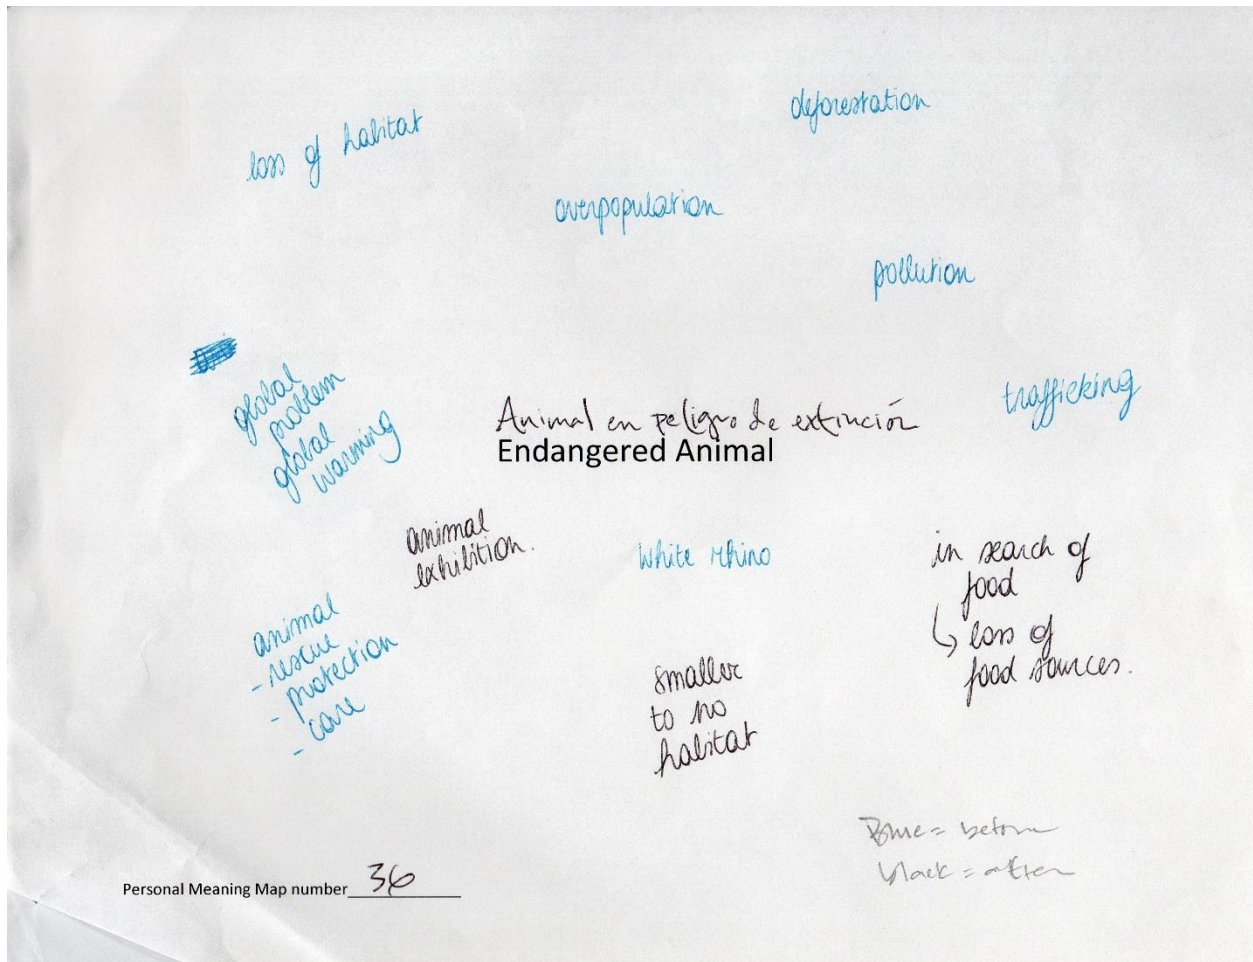 deforestation
loss of habitat
overpopulation
pollution
global
problem
global
warming
trafficking
Animal en peligro de extinción
Endangered Animal
animal
exhibition.
White rhino
in search of
food
↳ loss of
food sources.
animal
- rescue
- protection
- care
smaller
to no
habitat
Blue = before
black = after
Personal Meaning Map number 36